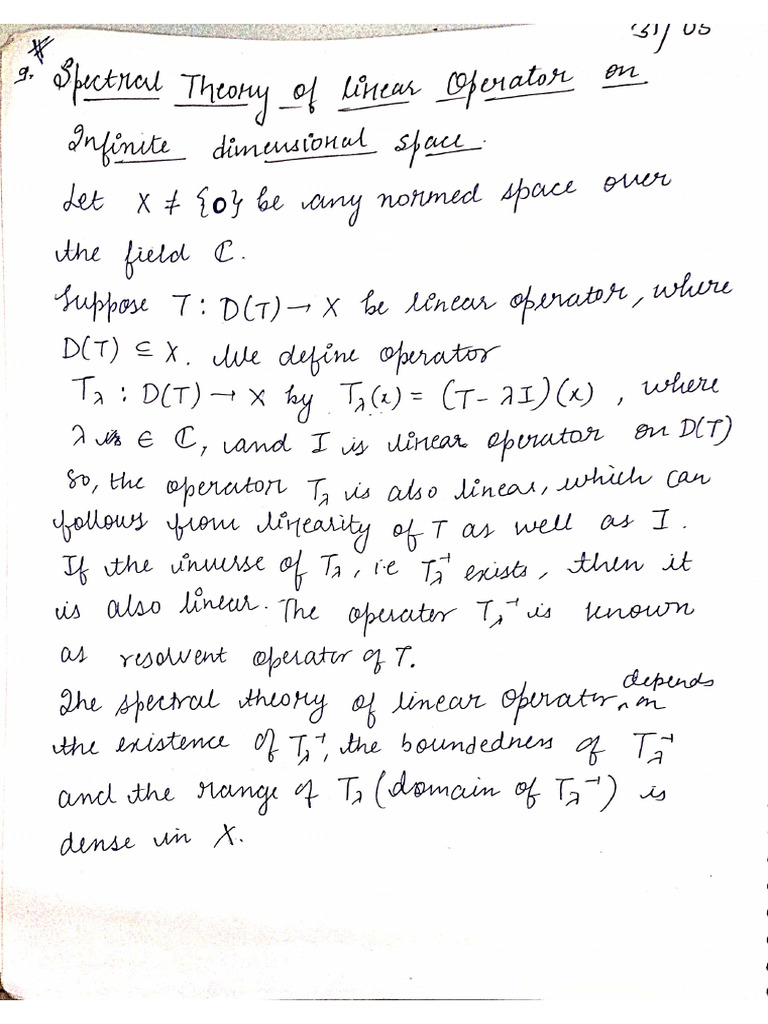 31/05
#
9. Spectral Theory of linear Operator on
Infinite dimensional space.
Let X ≠ {0} be any normed space over
the field ℂ.
Suppose T : D(T) → X be linear operator, where
D(T) ⊆ X. We define operator
T_λ : D(T) → X by T_λ(x) = (T - λI)(x) , where
λ ∈ ℂ, and I is linear operator on D(T)
So, the operator T_λ is also linear, which can
follows from linearity of T as well as I.
If the inverse of T_λ, i.e T_λ⁻¹ exists, then it
is also linear. The operator T_λ⁻¹ is known
as resolvent operator of T.
The spectral theory of linear operator depends on
the existence of T_λ⁻¹, the boundedness of T_λ⁻¹
and the range of T_λ (domain of T_λ⁻¹) is
dense in X.